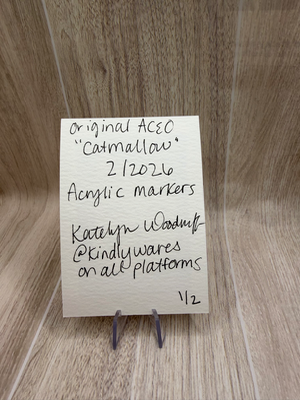 original ACEO
"Catmallow"
2/2026
Acrylic markers
Katelyn Woodruff
@kindlywares
on all platforms
1/2